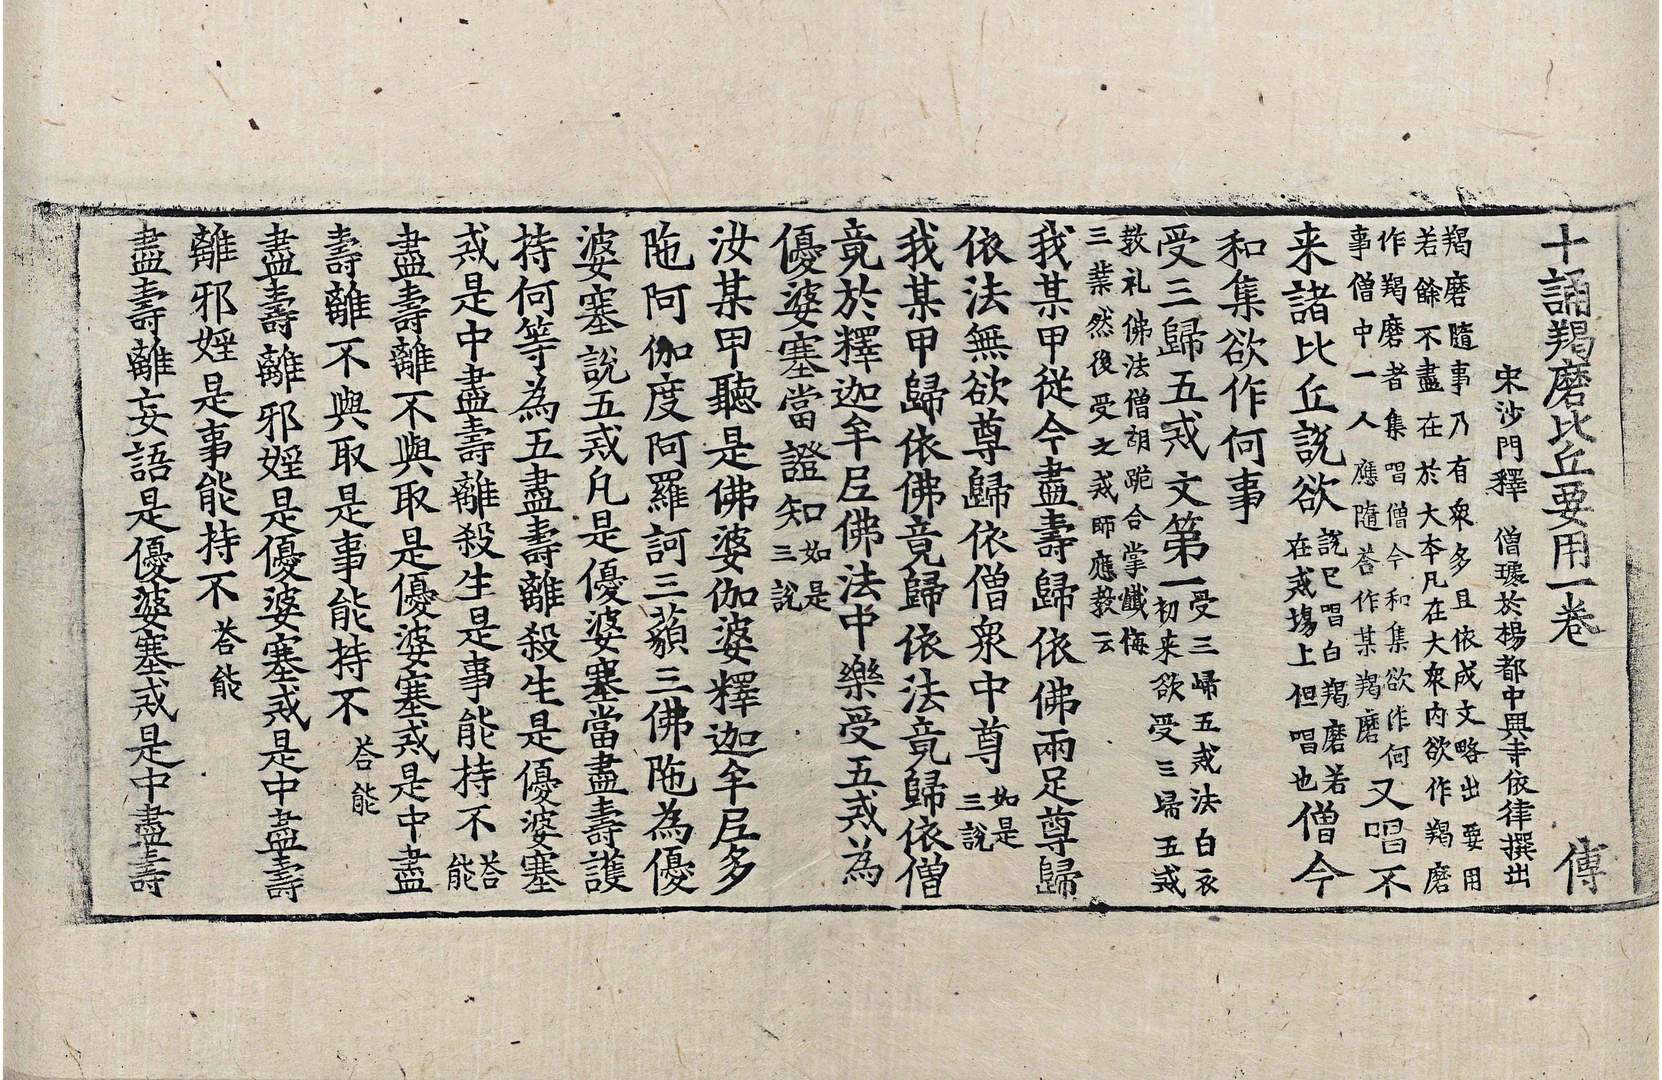 十誦羯磨比丘要用一卷　傳
宋沙門釋　僧璩於楊都中興寺依律撰出
羯磨隨事乃有衆多且依成文略出要用
若餘不盡在於大本凡在大衆內欲作羯磨
作羯磨者集唱僧今和集欲作何
事僧中一人應隨荅作某羯磨
又唱不
来諸比丘說欲
說已唱白羯磨若
在戒場上但唱也
僧今
和集欲作何事
受三歸五戒文第一
受三歸五戒法白衣
初来欲受三歸五戒
教礼佛法僧胡跪合掌懺悔
三業然後受之戒師應教云
我某甲從今盡壽歸依佛兩足尊歸
依法無欲尊歸依僧衆中尊
如是
三說
我某甲歸依佛竟歸依法竟歸依僧
竟於釋迦牟尼佛法中樂受五戒為
優婆塞當證知
如是
三說
汝某甲聽是佛婆伽婆釋迦牟尼多
陁阿伽度阿羅訶三藐三佛陁為優
婆塞說五戒凡是優婆塞當盡壽護
持何等為五盡壽離殺生是優婆塞
戒是中盡壽離殺生是事能持不
荅
能
盡壽離不與取是優婆塞戒是中盡
壽離不與取是事能持不
荅能
盡壽離邪婬是優婆塞戒是中盡壽
離邪婬是事能持不
荅能
盡壽離妄語是優婆塞戒是中盡壽